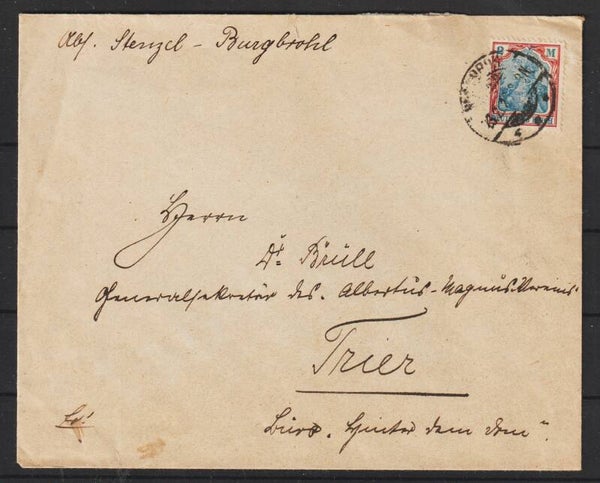 Abs. Stenzel - Burgbrohl
2 M
Herrn
Dr. Brüll
Generalsekretär des. Albertus-Magnus-Vereins
Trier
Büro. "Hinter dem Dom".